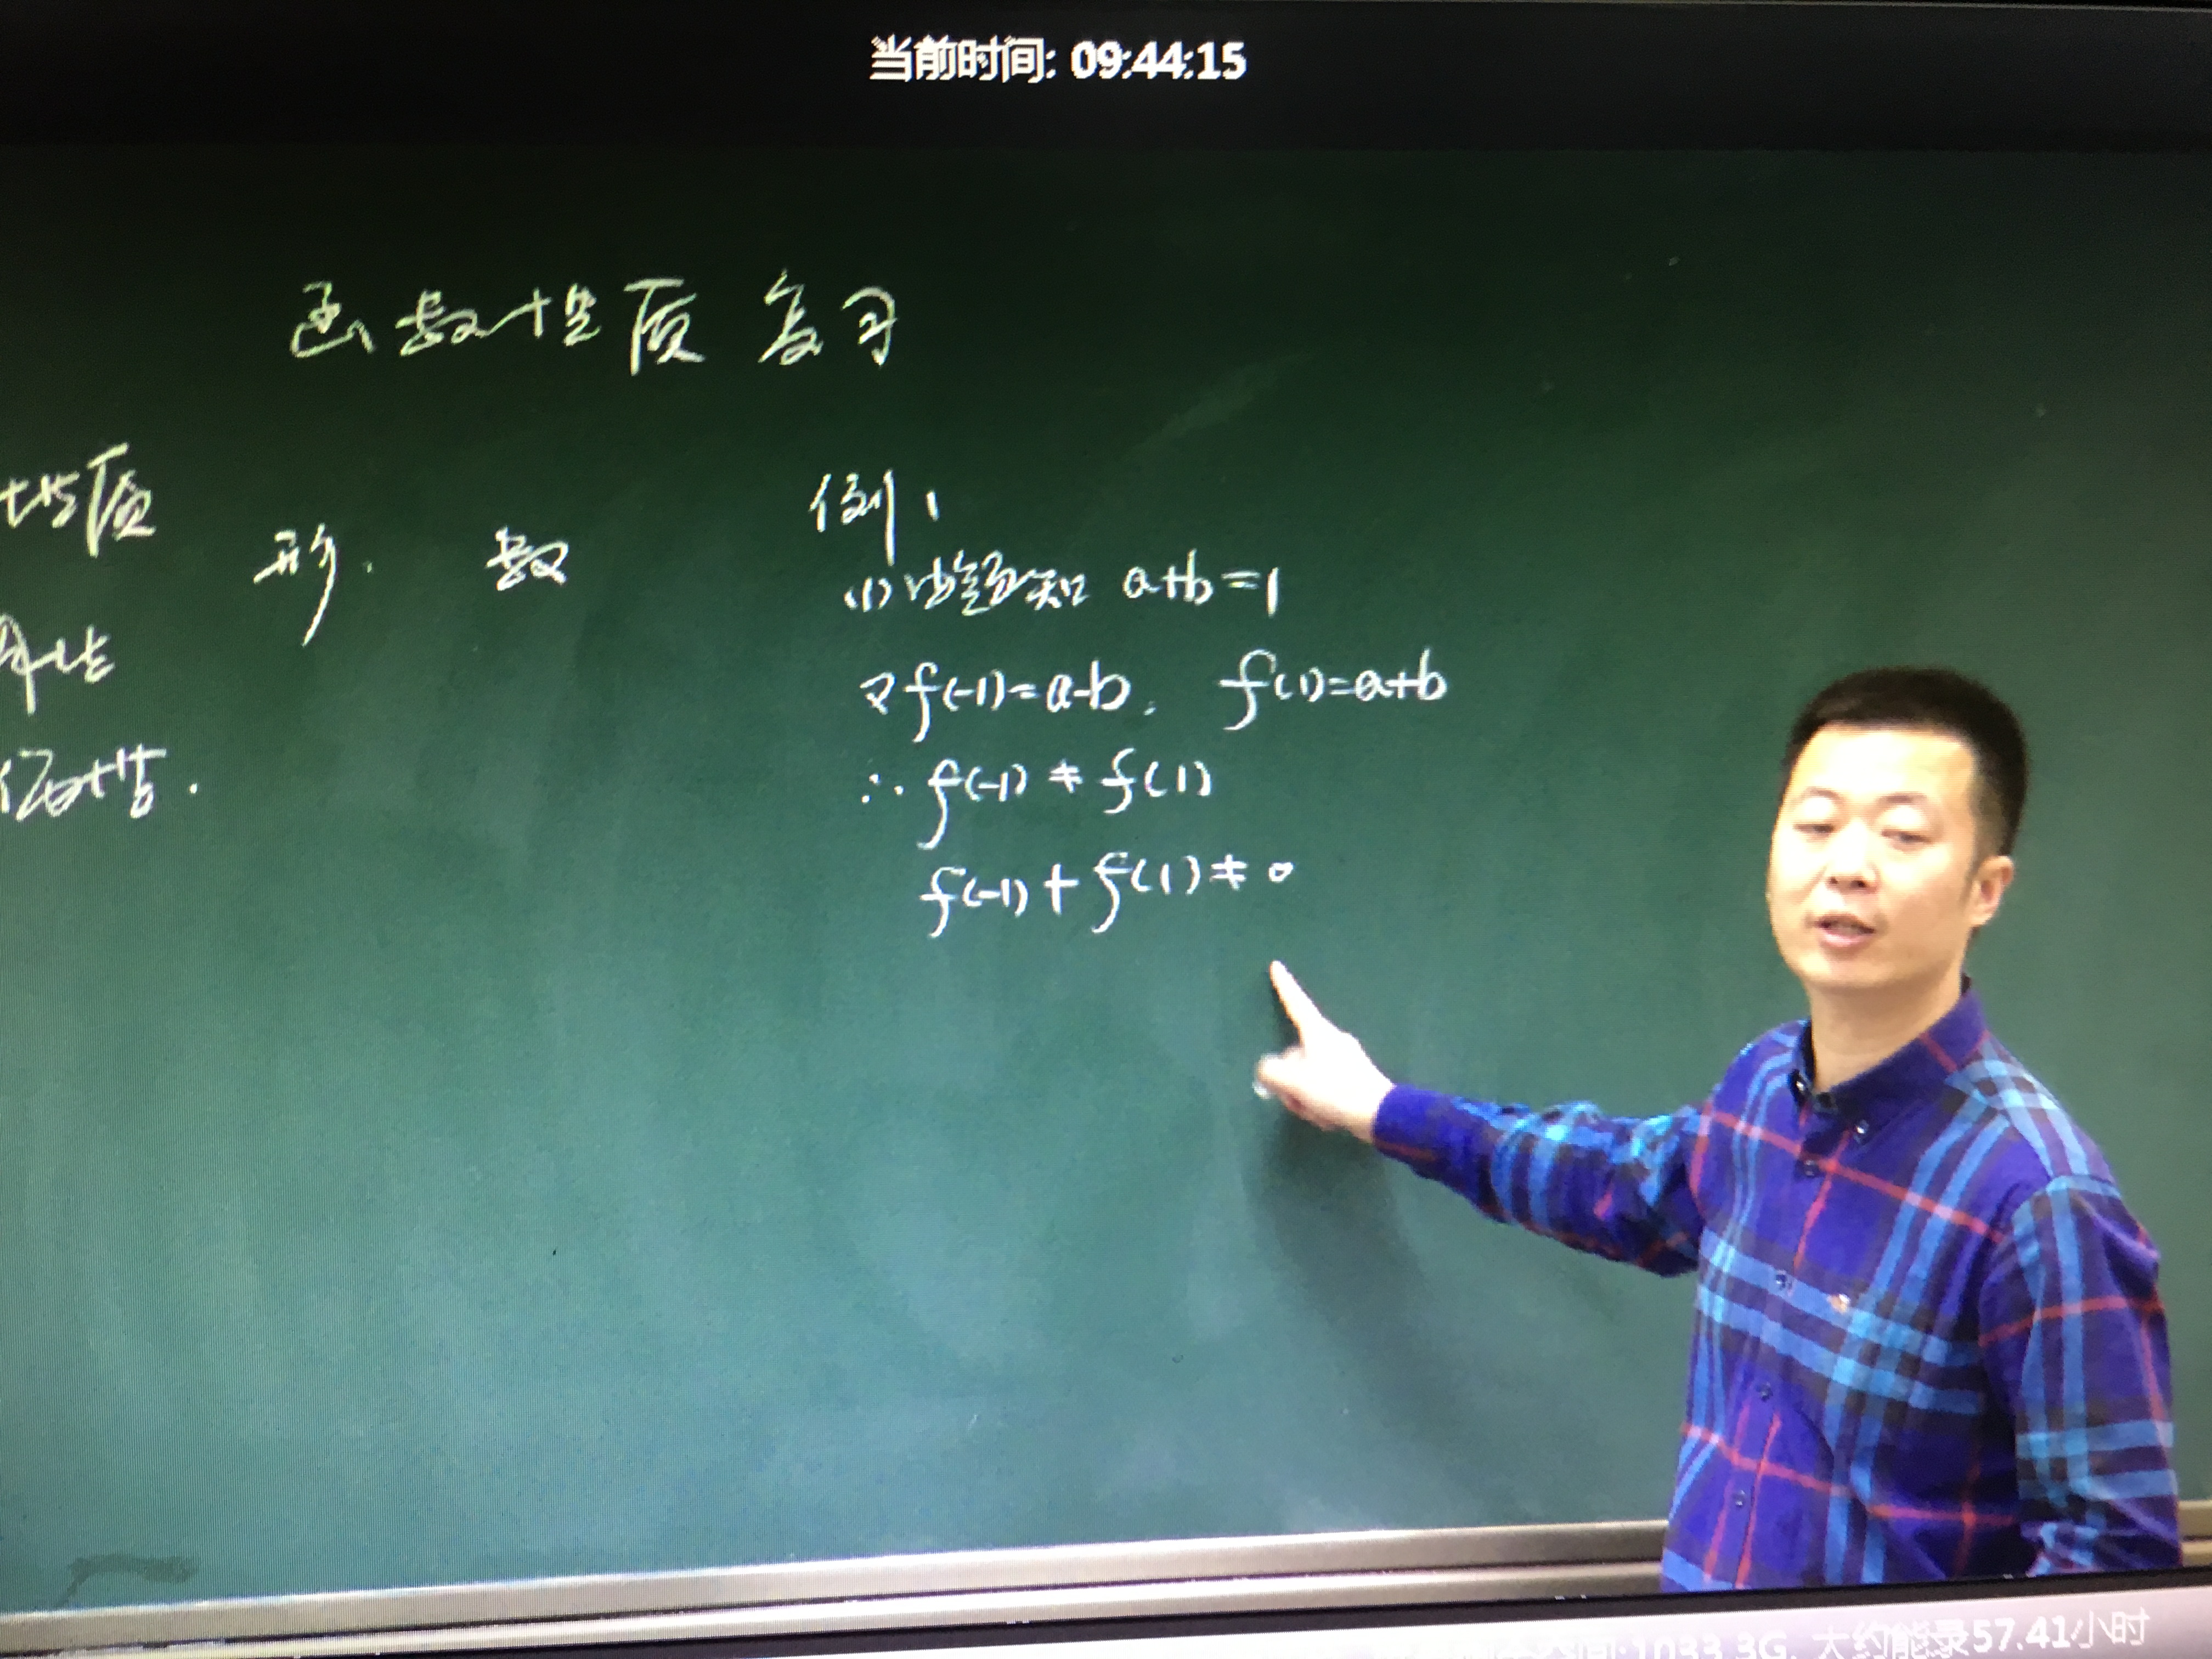 当前时间: 09:44:15
函数性质复习
性质 形. 数
例1
(1)由题知 a+b=1
又f(-1)=a-b, f(1)=a+b
∴ f(-1)≠f(1)
f(-1)+f(1)≠0
1033.3G, 大约能录57.41小时